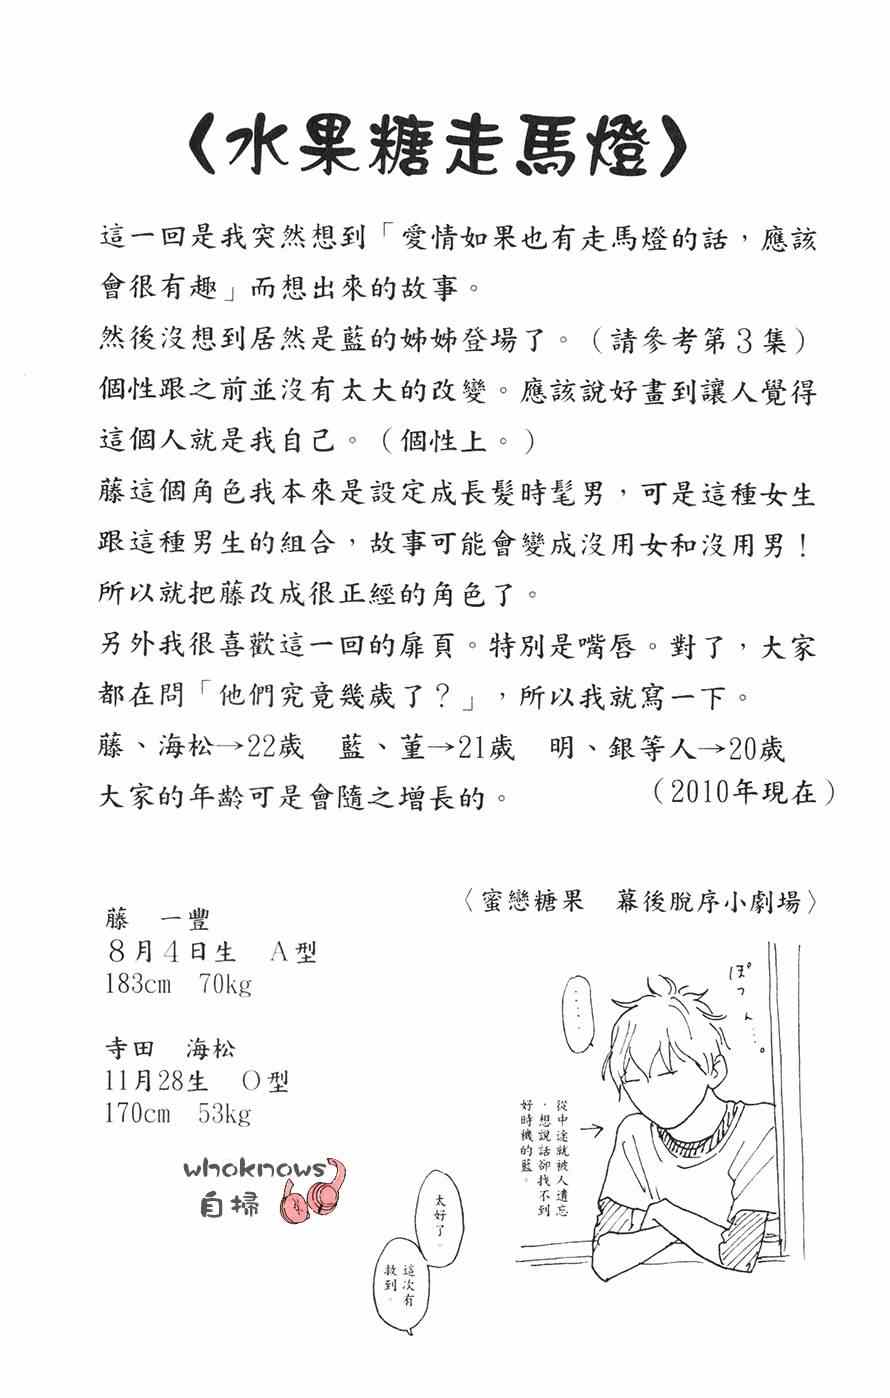 〈水果糖走馬燈〉
這一回是我突然想到「愛情如果也有走馬燈的話，應該
會很有趣」而想出來的故事。
然後沒想到居然是藍的姊姊登場了。（請參考第３集）
個性跟之前並沒有太大的改變。應該說好畫到讓人覺得
這個人就是我自己。（個性上。）
藤這個角色我本來是設定成長髮時髦男，可是這種女生
跟這種男生的組合，故事可能會變成沒用女和沒用男！
所以就把藤改成很正經的角色了。
另外我很喜歡這一回的扉頁。特別是嘴唇。對了，大家
都在問「他們究竟幾歲了？」，所以我就寫一下。
藤、海松→22歲　藍、堇→21歲　明、銀等人→20歲
大家的年齡可是會隨之增長的。
（2010年現在）
藤　一豐
８月４日生　Ａ型
183cm　70kg
寺田　海松
11月28生　Ｏ型
170cm　53kg
whoknows
自掃
〈蜜戀糖果　幕後脫序小劇場〉
ぽつん…。
……
從中途就被人遺忘
，想說話卻找不到
好時機的藍。
→
太好了。
這次有
救到。